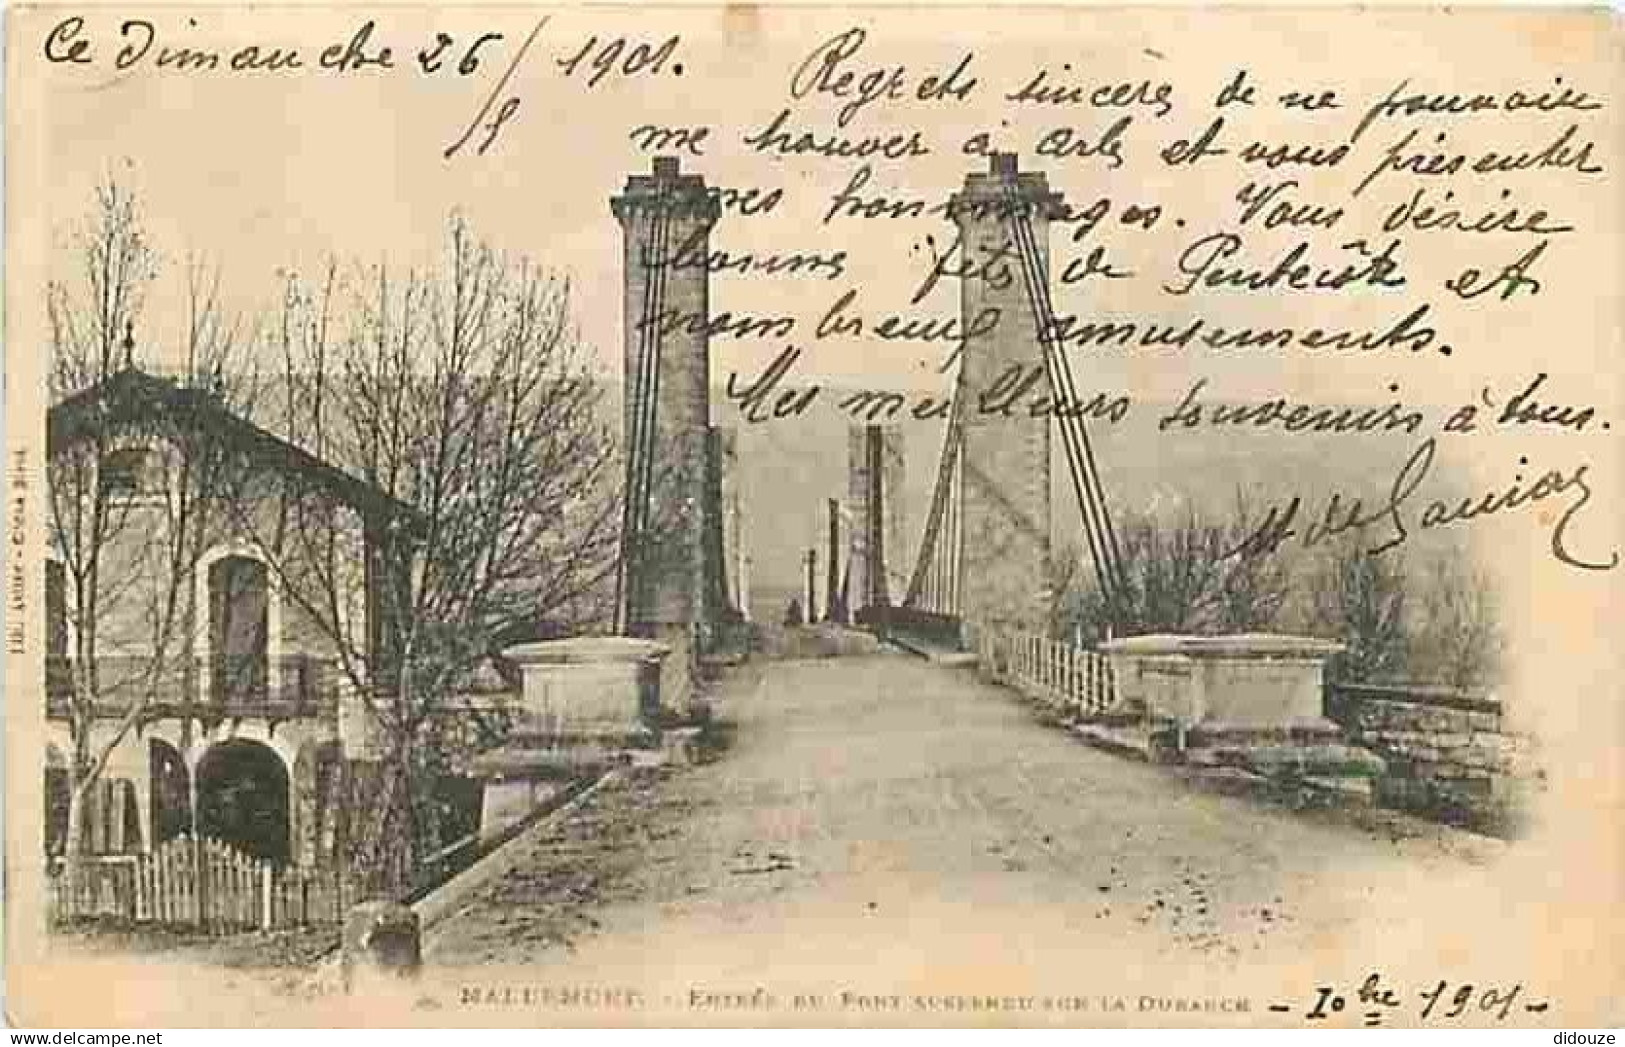 Ce Dimanche 26/5 1901.
Regrets sincères de ne pouvoir
me trouver à Arles et vous présenter
mes hommages. Vous désire
bonnes fêtes de Pentecôte et
nombreux amusements.
Mes meilleurs souvenirs à tous.
M de
MALLEMORT. - ENTRÉE DU PONT SUSPENDU SUR LA DURANCE
- Xbre 1901 -
didouze